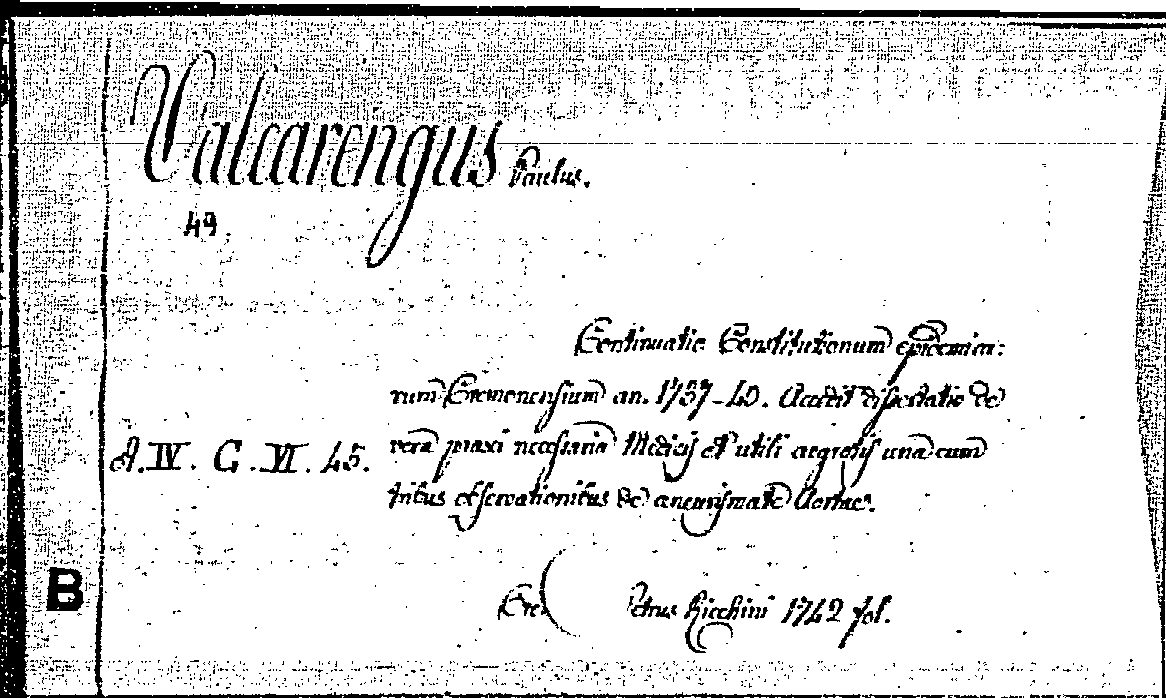 Valcarengus Paulus.
49.
Continuatio Constitutionum epidemica:
rum Cremonensium an. 1737-40. Accedit dissertatio de
A.IV. C.VI. 45. vera praxi necessaria Medicis et utili aegrotis una cum
tribus observationibus de aneurismate Aortae.
B
Cre Petrus Ricchini 1742 fol.